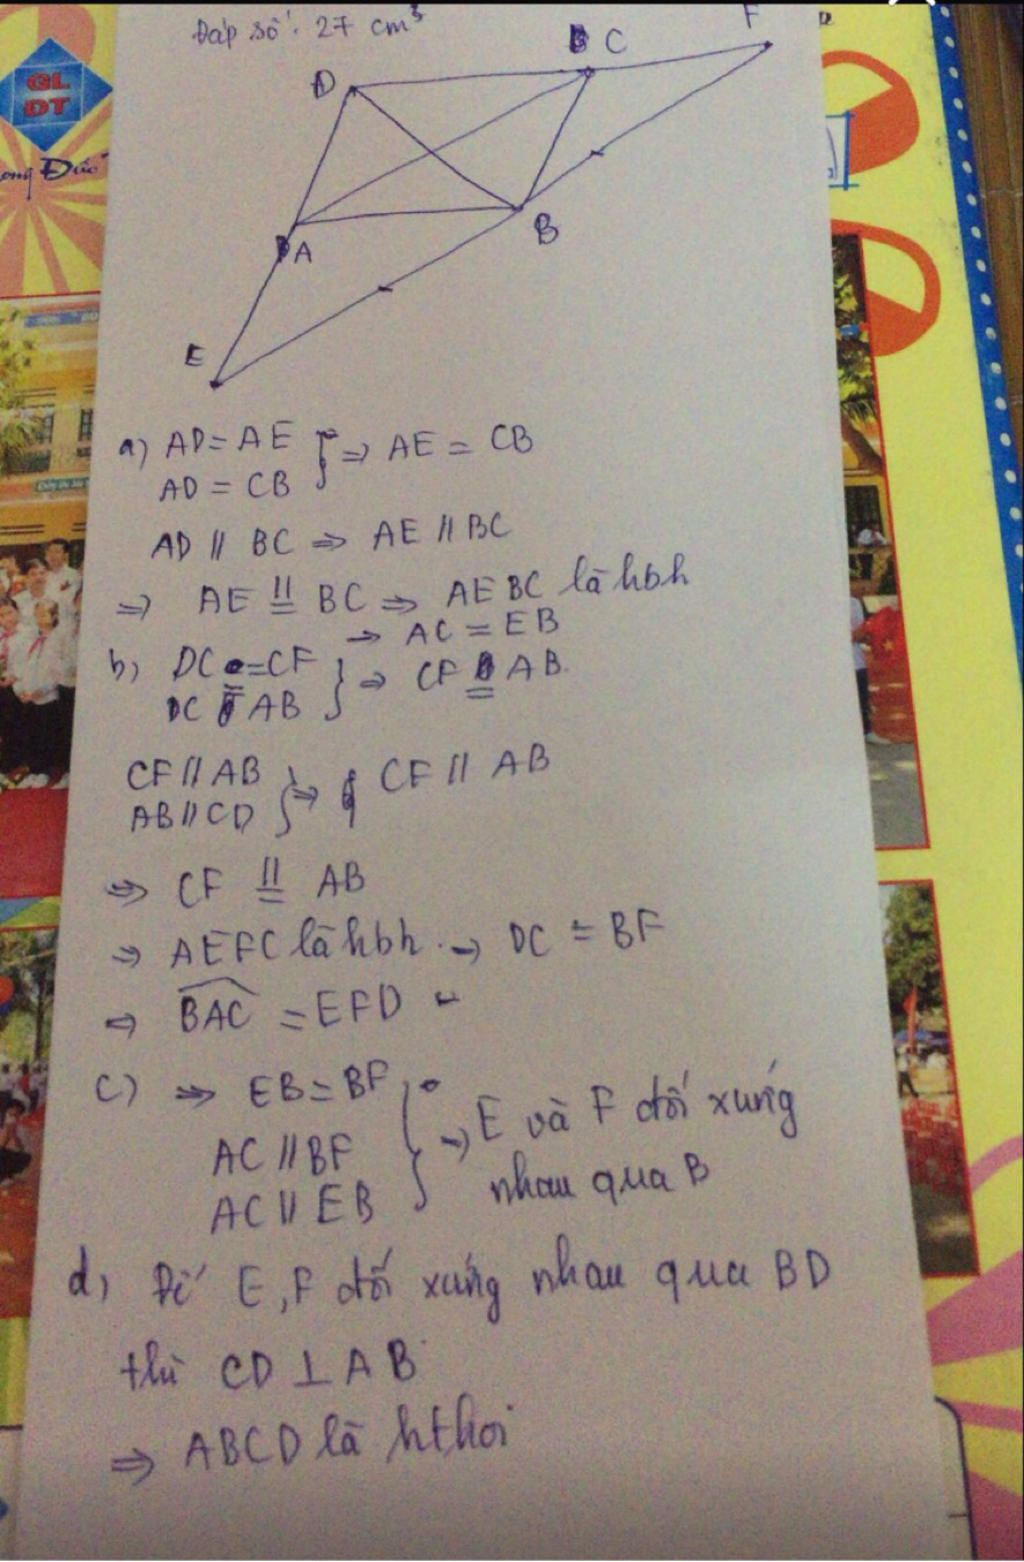 Đáp số: 27 cm³
GL
ĐT
Đức
D
C
F
A
B
E
a) AD = AE
AD = CB } ⇒ AE = CB
AD // BC ⇒ AE // BC
⇒ AE // = BC ⇒ AEBC là hbh
→ AC = EB
b) DC = CF
DC = AB } ⇒ CF = AB.
CF // AB
AB // CD } ⇒ CF // AB
⇒ CF // = AB
⇒ AEFC là hbh. → DC = BF
⇒ BAC = EFD
c) ⇒ EB = BF
AC // BF
AC // EB } → E và F đối xứng
nhau qua B
d) Để E, F đối xứng nhau qua BD
thì CD ⊥ AB
⇒ ABCD là hthoi